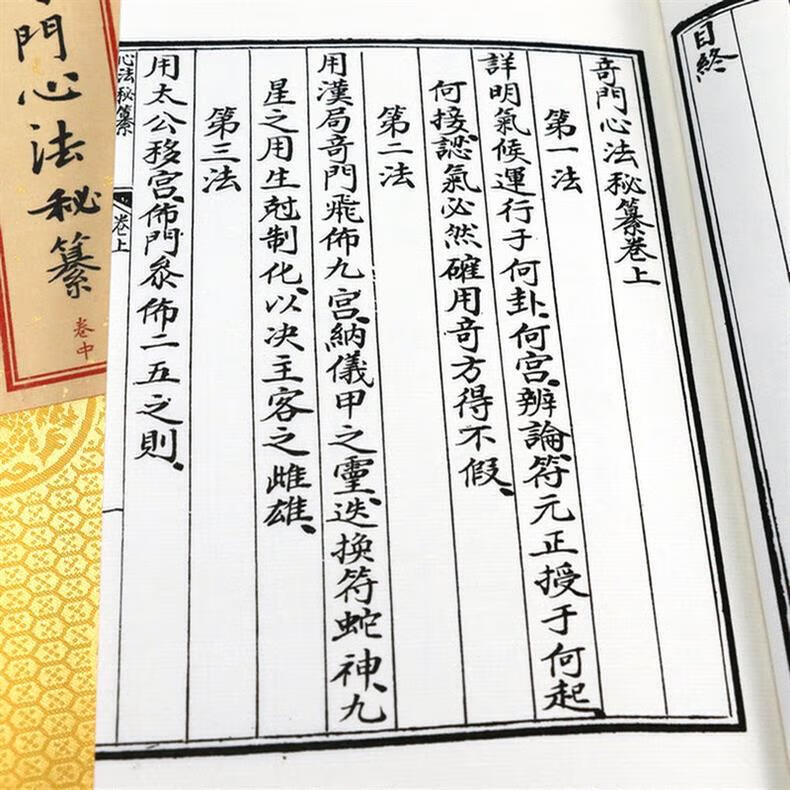 目終
奇門心法秘纂卷上
第一法
詳明氣候運行于何卦、何宮、辨論符元正授于何起、
何接、認氣必然確用奇方得不假、
第二法
用漢局奇門飛佈九宮、納儀甲之靈、迭換符蛇神、九
星之用生尅制化、以决主客之雌雄、
第三法
用太公移宮、佈門叅佈二五之則、
心法秘纂
卷上
門心法秘纂
卷中